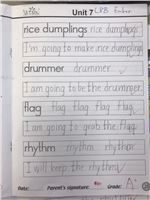 Unit 7 LPB Ember
rice dumplings rice dumplings
I'm going to make rice dumplings.
drummer drummer
I am going to be the drummer.
flag flag flag flag flag
I am going to grab the flag.
rhythm rhythm rhythm
I will keep the rhythm.
Date: Parent's signature: Grade: A+